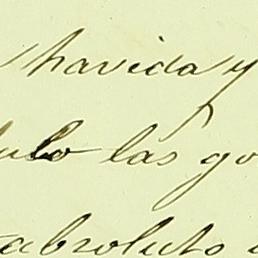 havida y
las go
absoluto